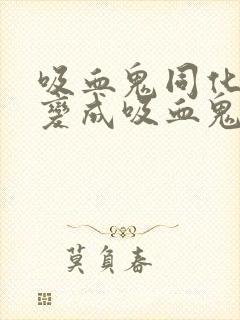 吸血鬼同化
变成吸血鬼
莫负春